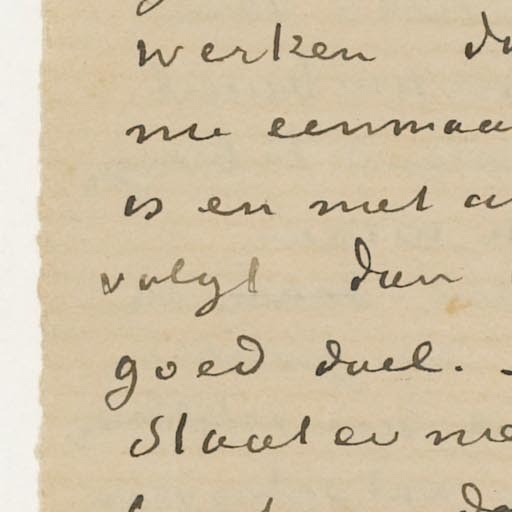 werken
nu eenmaa
is en met a
volgt dan
goed doel. -
Staat er me